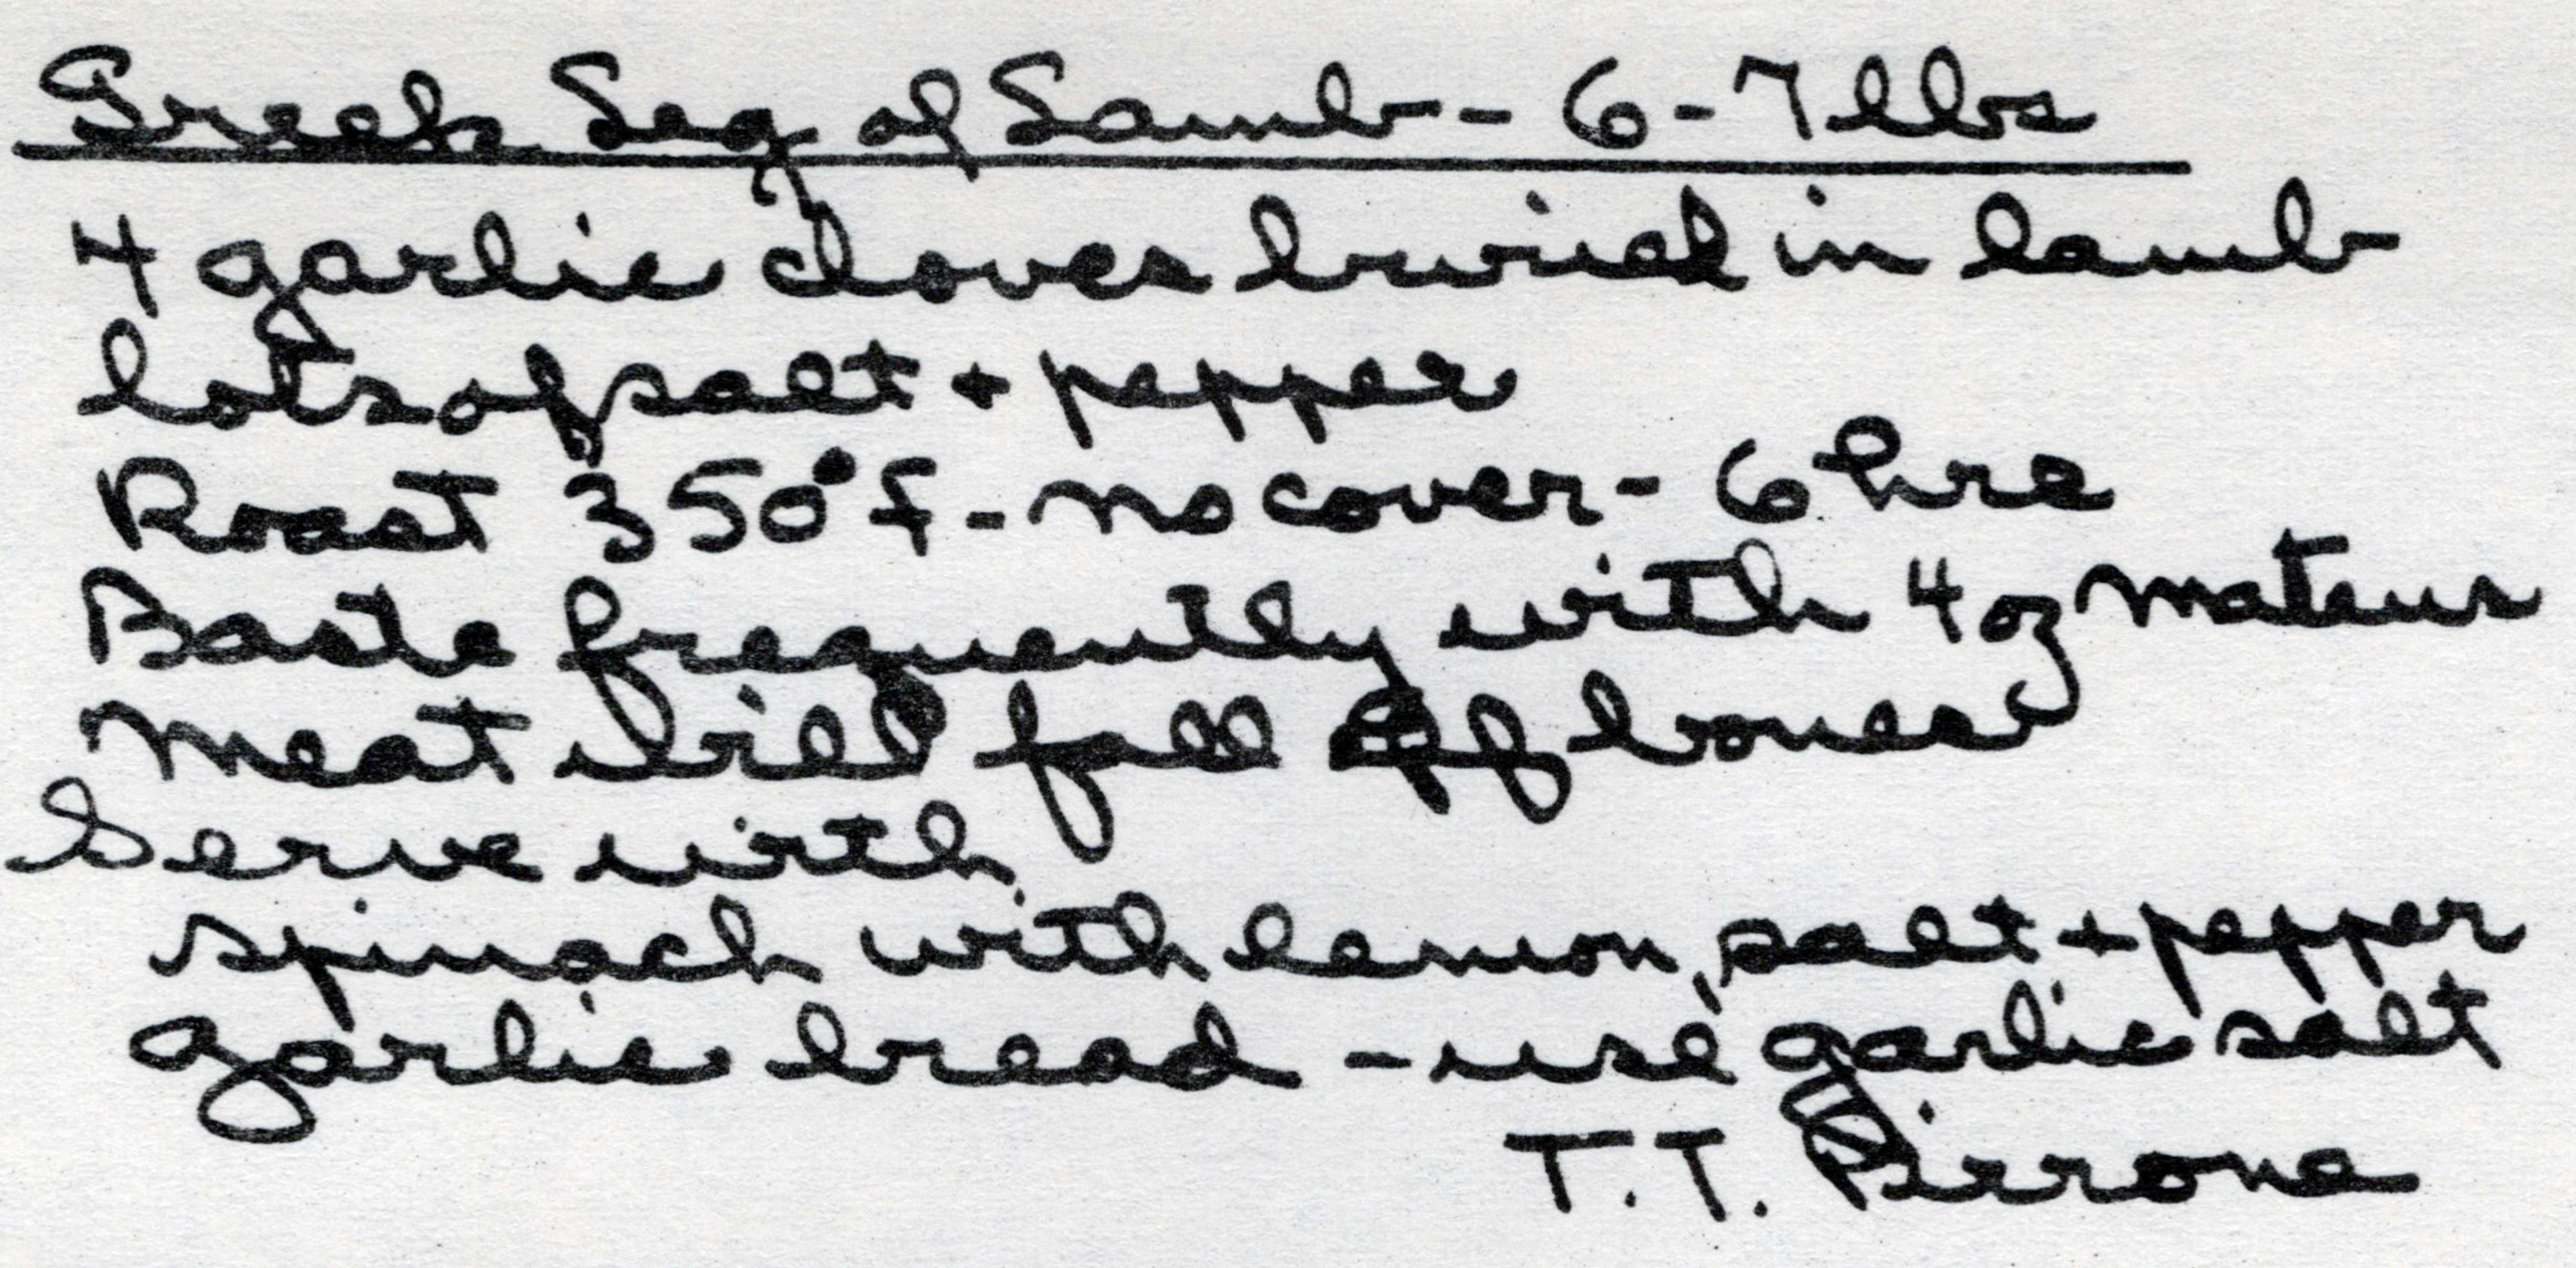 Greek Leg of Lamb - 6 - 7 lbs
4 garlic cloves buried in lamb
lots of salt + pepper
Roast 350°f - no cover - 6 hrs
Baste frequently with 4 oz mateus
Meat will fall off bones
Serve with
spinach with lemon, salt + pepper
garlic bread - use garlic salt
T.T. Pirrone